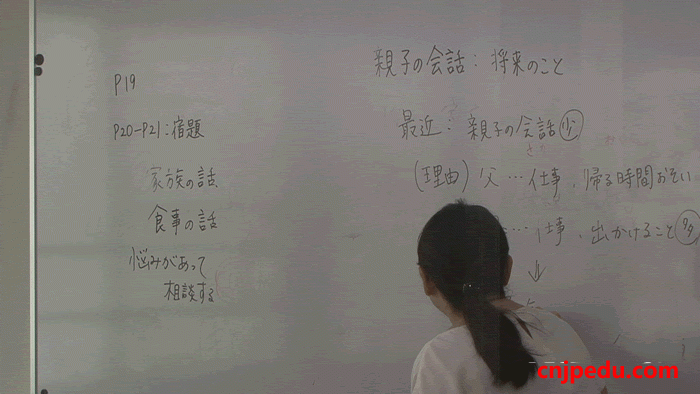 P19
P20-P21:宿題
家族の話
食事の話
悩みがあって
相談する
親子の会話: 将来のこと
最近: 親子の会話 少
(理由) 父…仕事、帰る時間おそい
…仕事、出かけること 多
↓
cnjpedu.com